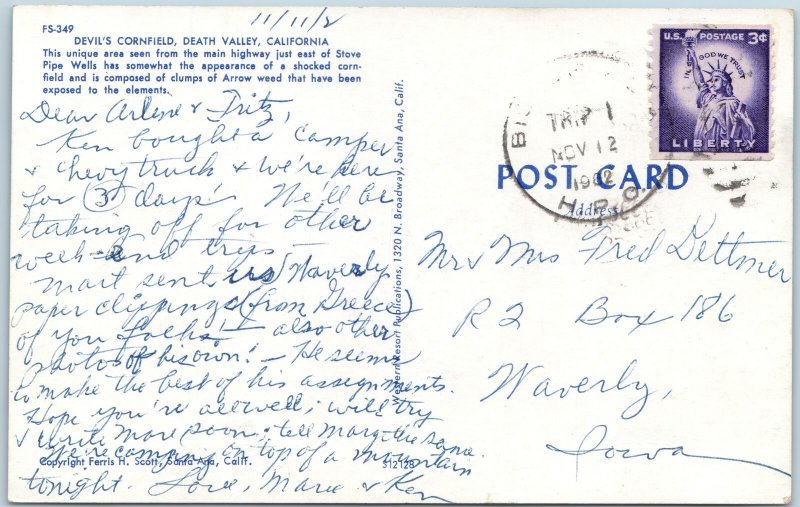 11/11/2
FS-349
DEVIL'S CORNFIELD, DEATH VALLEY, CALIFORNIA
This unique area seen from the main highway just east of Stove
Pipe Wells has somewhat the appearance of a shocked corn-
field and is composed of clumps of Arrow weed that have been
exposed to the elements.
Dear Arlene & Fritz,
Ken bought a camper
& Chevy truck & we're here
for 3 days. We'll be
taking off for other
week-end trips —
Mart sent us Waverly
paper clippings (from Greece)
of you folks! — also other
photos of his own! — He seems
to make the best of his assignments.
Hope you're all well; will try
& write more soon; tell Marg the same.
We're camping on top of a mountain
tonight. Love, Marie & Ken
Copyright Ferris H. Scott, Santa Ana, Calif.
S12128
Western Resort Publications, 1320 N. Broadway, Santa Ana, Calif.
U.S. POSTAGE 3¢
IN GOD WE TRUST
LIBERTY
TRIP 1
NOV 12
1962
H.P.O.
POST CARD
Address
Mr & Mrs Fred Dettmer
R 2 Box 186
Waverly,
Iowa